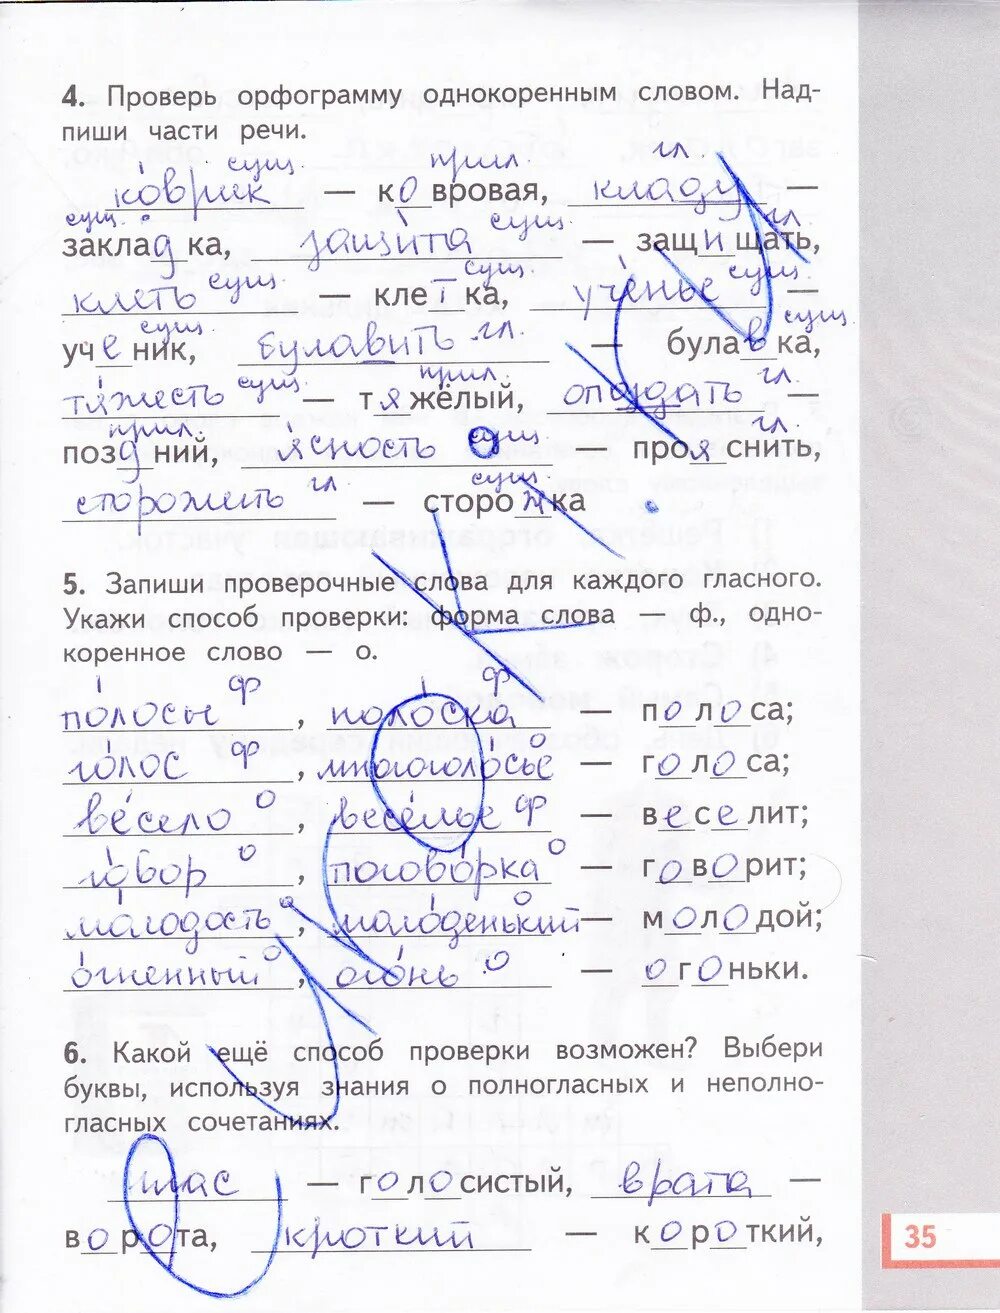 4. Проверь орфограмму однокоренным словом. Над-
пиши части речи.
сущ. прил. гл.
коврик — ковровая, кладу —
сущ. сущ. гл.
закладка, защита — защищать,
сущ. сущ. сущ.
клеть — клетка, ученье —
сущ. гл. сущ.
ученик, булавить — булавка,
сущ. прил. гл.
тяжесть — тяжёлый, опоздать —
прил. сущ. гл.
поздний, ясность — прояснить,
гл. сущ.
сторожить — сторожка
5. Запиши проверочные слова для каждого гласного.
Укажи способ проверки: форма слова — ф., одно-
коренное слово — о.
полосы ф, полоска ф — полоса;
голос ф, многоголосье о — голоса;
весело о, веселье ф — веселит;
говор о, поговорка о — говорит;
молодость о, молоденький о — молодой;
огненный о, огонь о — огоньки.
6. Какой ещё способ проверки возможен? Выбери
буквы, используя знания о полногласных и неполно-
гласных сочетаниях.
глас — голосистый, врата —
ворота, кроткий — короткий,
35